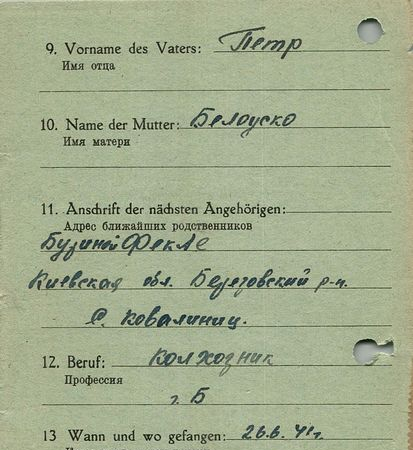 9. Vorname des Vaters: Петр
Имя отца
10. Name der Mutter: Белоуско
Имя матери
11. Anschrift der nächsten Angehörigen:
Адрес ближайших родственников
Бузиной Фекле
Киевская обл. Березовский р-н.
С. Ковалиниц.
12. Beruf: колхозник
Профессия
г. Б
13 Wann und wo gefangen: 26.6.41г.